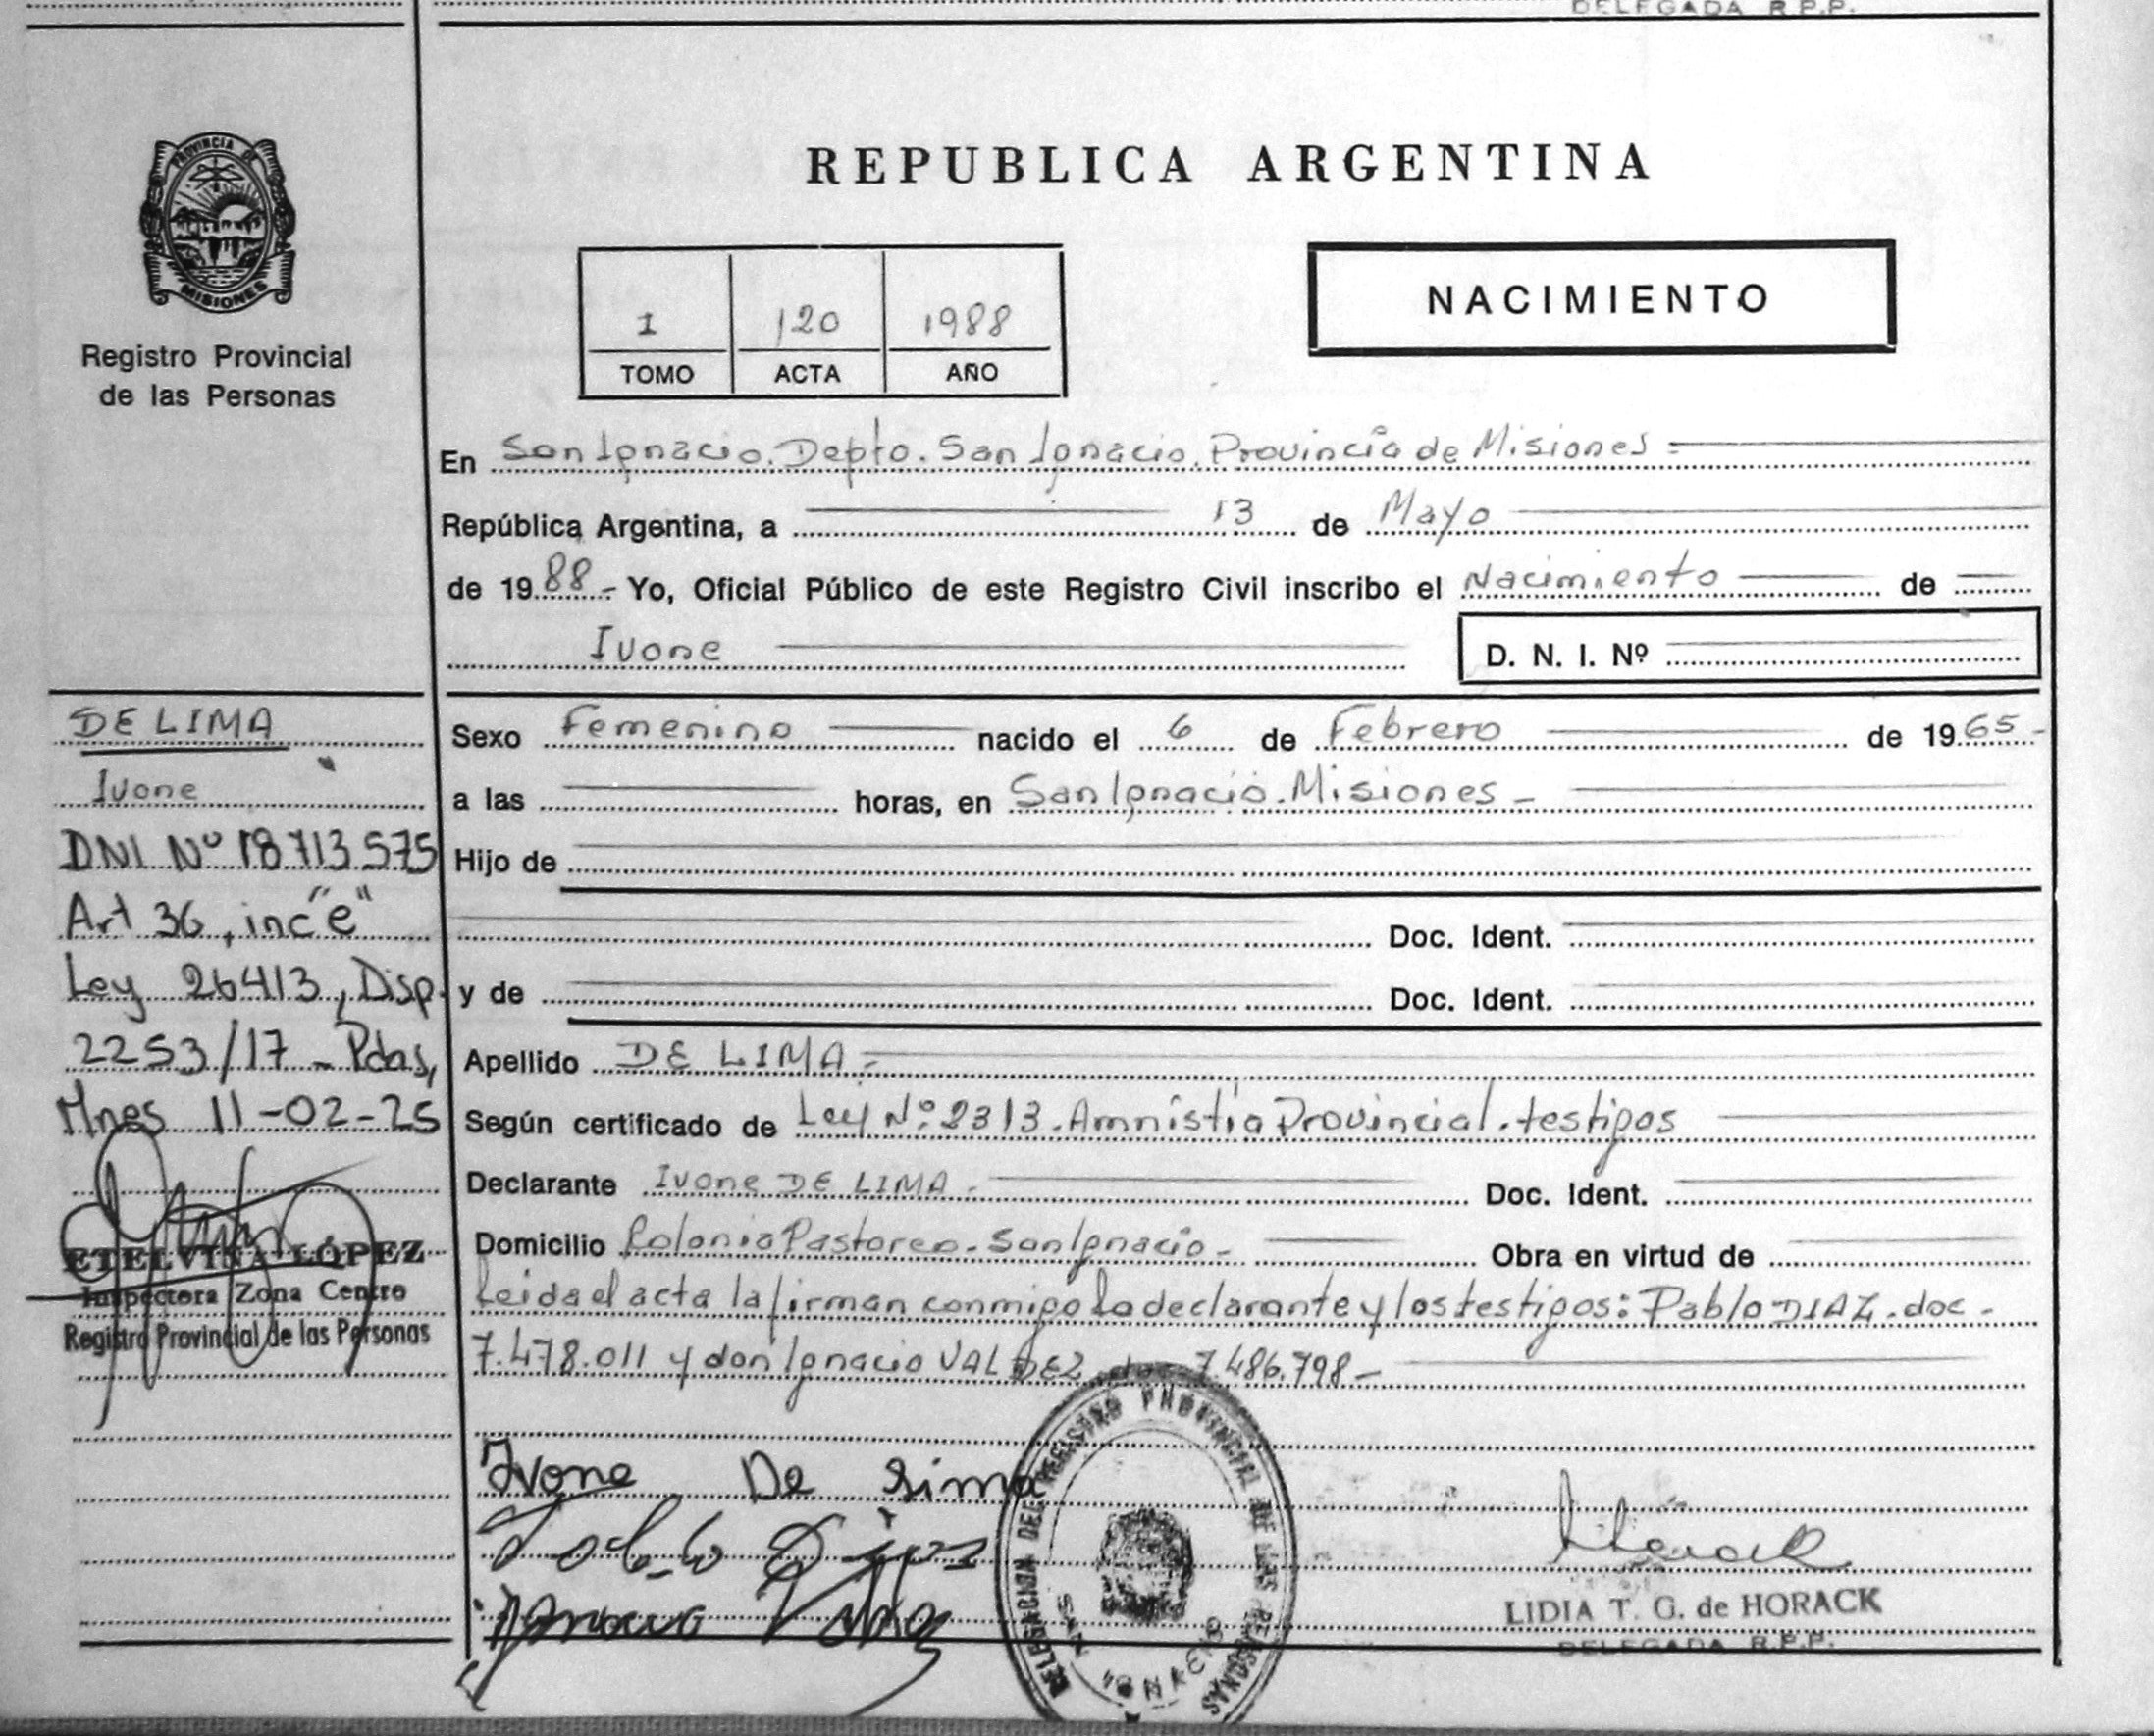 DELEGADA R.P.P.
PROVINCIA DE
MISIONES
Registro Provincial
de las Personas
REPUBLICA ARGENTINA
1 120 1988
TOMO ACTA AÑO
NACIMIENTO
En San Ignacio. Depto. San Ignacio. Provincia de Misiones =
República Argentina, a 13 de Mayo
de 1988.- Yo, Oficial Público de este Registro Civil inscribo el Nacimiento de
Ivone
D. N. I. Nº
DE LIMA
Ivone
DNI Nº 18713575
Art 36, inc "e"
Ley 26413, Disp.
2253/17 - Pdas,
Mnes 11-02-25
ETELVINA LÓPEZ
Inspectora Zona Centro
Registro Provincial de las Personas
Sexo Femenino nacido el 6 de Febrero de 1965-
a las horas, en San Ignacio. Misiones -
Hijo de
Doc. Ident.
y de Doc. Ident.
Apellido DE LIMA.-
Según certificado de Ley Nº: 2313. Amnistía Provincial. testigos
Declarante Ivone DE LIMA - Doc. Ident.
Domicilio Colonia Pastoreo - San Ignacio - Obra en virtud de
Leida el acta la firman conmigo la declarante y los testigos: Pablo DIAZ. doc.
7.478.011 y don Ignacio VALDEZ doc 7.486.798-
Ivone De Lima
DELEGACION DEL REGISTRO PROVINCIAL DE LAS PERSONAS
SAN IGNACIO
LIDIA T. G. de HORACK
DELEGADA R.P.P.